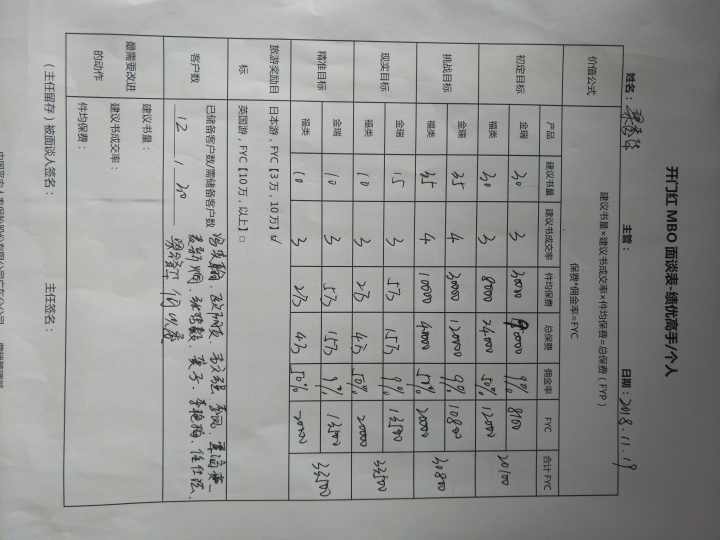 开门红 MBO 面谈表-绩优高手/个人
姓名： 主管： 日期：2018.11.19
价值公式 建议书量×建议书成交率×件均保费=总保费（FYP）
保费*佣金率=FYC
产品 建议书量 建议书成交率 件均保费 总保费 佣金率 FYC 合计 FYC
初定目标 金瑞 30 3 30000 90000 9% 8100 20100
福类 30 3 8000 24000 50% 12000
挑战目标 金瑞 35 4 30000 120000 9% 10800 30800
福类 35 4 10000 40000 50% 20000
现实目标 金瑞 15 3 5万 15万 9% 13500 33500
福类 10 3 2万 4万 50% 20000
精准目标 金瑞 10 3 5万 15万 9% 13500 33500
福类 10 3 2万 4万 50% 20000
旅游奖励目标 日本游，FYC【3 万，10 万】√
英国游，FYC【10 万，以上】□
客户数 已储备客户数/需储备客户数
12 / 30
最需要改进的动作 建议书量：
建议书成交率：
件均保费：
（主任留存）被面谈人签名： 主任签名：